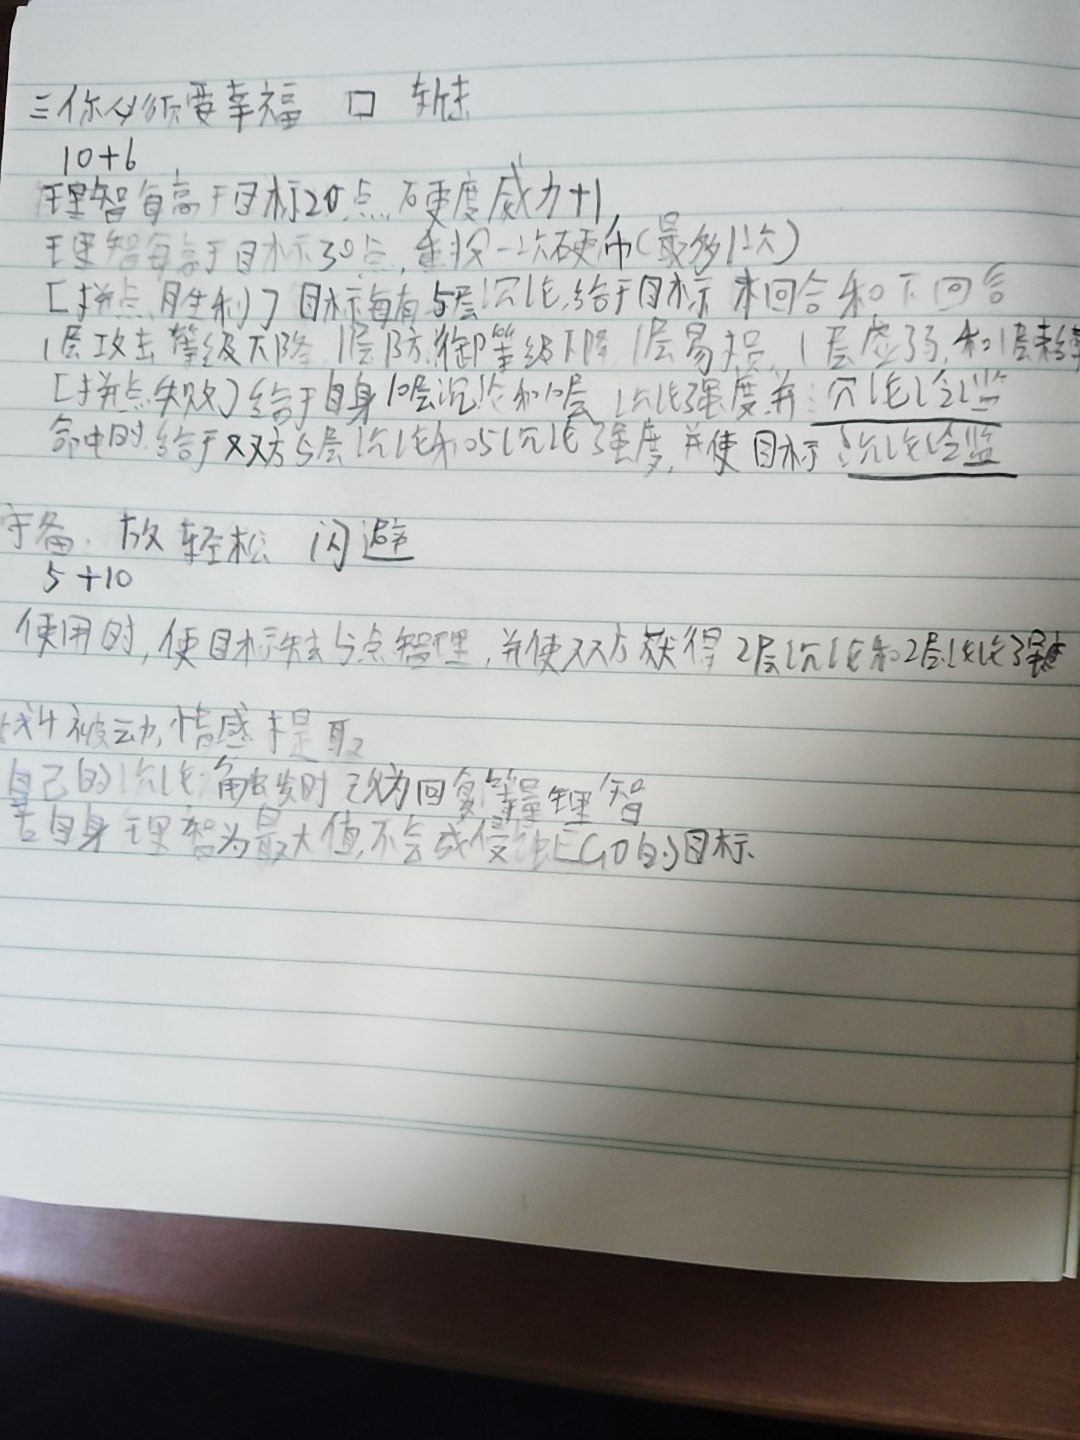 三你必须要幸福 口 斩击
10+6
理智每高于目标20点 硬度威力+1
理智每高于目标30点,重投一次硬币(最多1次)
[拼点胜利] 目标每有5层沉沦,给于目标 本回合和下回合
1层攻击等级下降 1层防御等级下降 1层易损 1层虚弱,和1层
[拼点失败]给于自身10层沉沦和10层 沉沦强度并 沉沦
命中时 给于双方5层沉沦和5沉沦强度,并使目标 沉沦
守备 放轻松 闪避
5+10
使用时,使目标失去5点智理,并使双方获得2层沉沦和2层沉沦强
战斗被动,情感提取
自己的沉沦触发时 改为回复等量理智
若自身理智为最大值,不会成侵蚀EGO的目标.